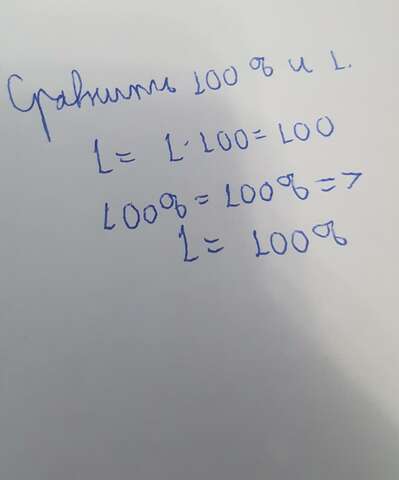 Сравнить 100% и 1.
1 = 1·100 = 100
100% = 100% =>
1 = 100%